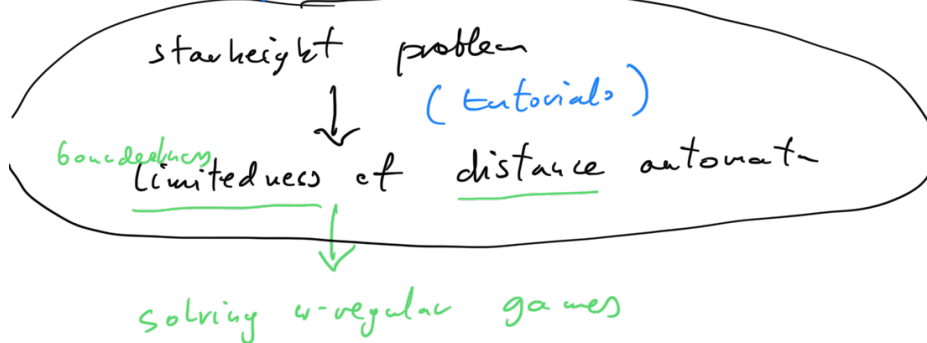 starheight problem
(tutorials)
boundedness
limitedness of distance automata
solving ω-regular games